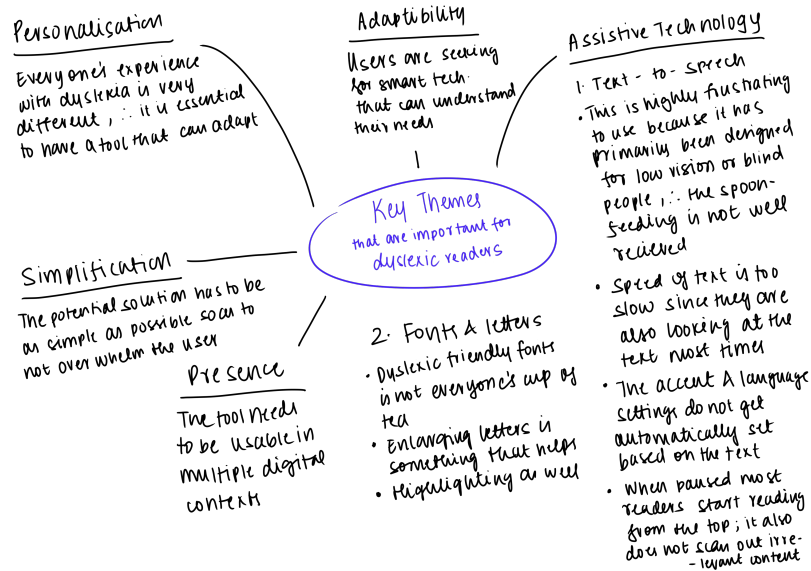 Personalisation
Everyone's experience
with dyslexia is very
different, ∴ it is essential
to have a tool that can adapt
Adaptibility
Users are seeking
for smart tech.
that can understand
their needs
Assistive Technology
1. Text - to - speech
• This is highly frustrating
to use because it has
primarily been designed
for low vision or blind
people, ∴ the spoon-
feeding is not well
recieved
• Speed of text is too
slow since they are
also looking at the
text most times
• The accent & language
settings do not get
automatically set
based on the text
• When paused most
readers start reading
from the top; it also
does not scan out irre-
- levant content
Key Themes
that are important for
dyslexic readers
Simplification
The potential solution has to be
as simple as possible so as to
not over whelm the user
Presence
The tool needs
to be usable in
multiple digital
contexts
2. Fonts & letters
• Dyslexic friendly fonts
is not everyone's cup of
tea
• Enlarging letters is
something that helps
• Highlighting as well